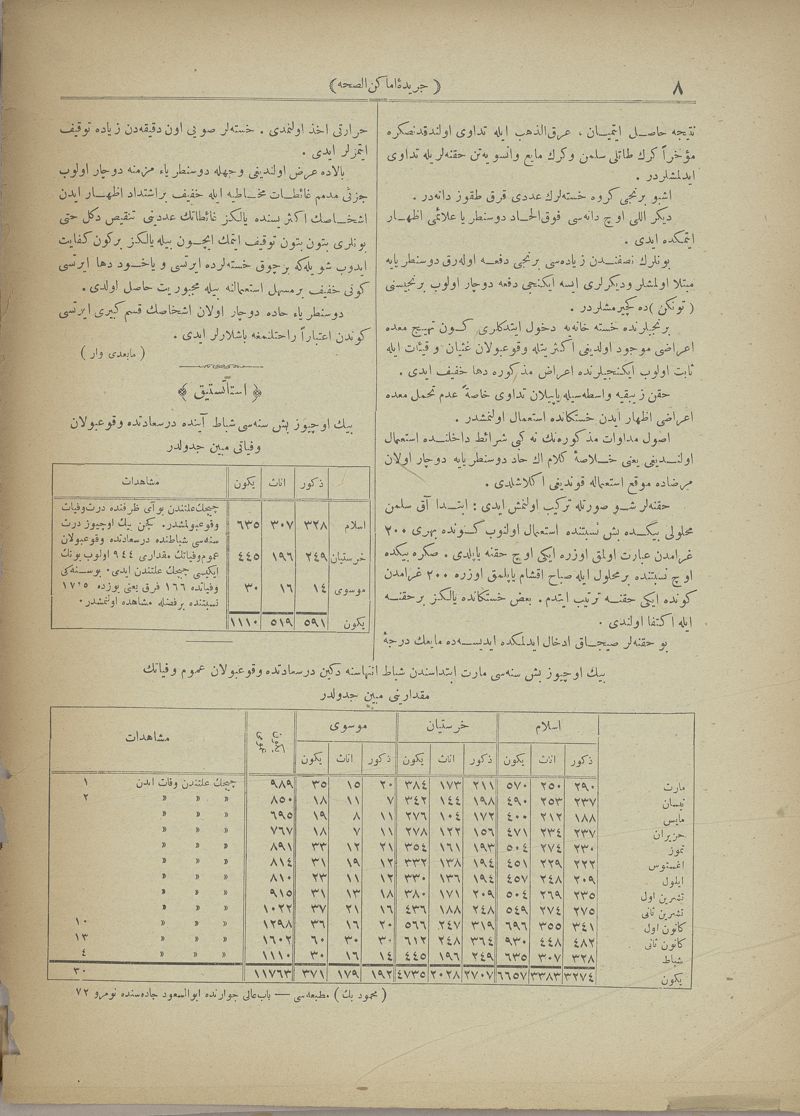 ٨
( جريدهٔ اماكن الصحه )
نتيجه حاصل ايتميان ، عرق الذهب ايله تداوى اولندقدنصكره
مؤخراً كرك طاتلى سلمن وكرك مايع وانسويه تن حقنه لريله تداوى
ايدلمشلردر .
اشبو برنجى كروه خسته لرك عددى قرق طقوز دانه در .
ديكر اللى اوچ دانه سى فوق الحاد دوسنطريا علائمى اظهار
ايتمكده ايدى .
بونلرك نصفندن زياده سى برنجى دفعه اوله رق دوسنطريايه
مبتلا اولمشلر وديكرلرى ايسه ايكنجى دفعه دوچار اولوب برنجيسنى
( تونكن ) ده كچيرمشلردر .
برنجيلرنده خسته خانه يه دخول ايتدكلرى كون تهييج معده
اعراضى موجود اولديغى اكثريتله وقوعبولان غثيان و قيئات ايله
ثابت اولوب ايكنجيلرنده اعراض مذكوره دها خفيف ايدى .
حقن زيبقيه واسطه سيله ياپيلان تداوى خاصةً عدم تحمل معده
اعراضى اظهار ايدن خستكانده استعمال اولنمشدر .
اصول مداوات مذكوره نك نه كبى شرائط داخلنده استعمال
اولنديغى يعنى خلاصهٔ كلام اك حاد دوسنطريايه دوچار اولان
مرضاده موقع استعماله قونديغى اكلاشلدى .
حقنه لر شو صورتله تركيب اولنمش ايدى : ابتدا آق سلمن
محلولى بيكده بش نسبتنده استعمال اولنوب كونده بهرى ٢٠٠
غرامدن عبارت اولمق اوزره ايكى اوچ حقنه ياپلدى . صكره بيكده
اوچ نسبتنده بر محلول ايله صباح اقشام ياپلمق اوزره ٢٠٠ غرامدن
كونده ايكى حقنه ترتيب ايتدم . بعض خستكانده يالكز بر حقنه
ايله اكتفا اولندى .
بو حقنه لر صيجاق ادخال ايدلمكده ايديسه ده مايعك درجهٔ
حرارتى اخذ اولنمدى . خسته لر صويى اون دقيقه دن زياده توقيف
ايتمزلر ايدى .
بالاده عرض اولنديغى وجهله دوسنطرياء مزمنه دوچار اولوب
جزئى مدمم غائطات مخاطيه ايله خفيف بر اشتداد اظهار ايدن
اشخاصك اكثريسنده يالكز غائطاتك عددينى تنقيص دكل حتى
بونلرى بتون بتون توقيف ايتمك ايچون بيله يالكز بركون كفايت
ايدوب شويله كه برچوق خسته لرده ايرتسى و ياخود دها ايرتسى
كونى خفيف بر مسهل استعمالنه بيله مجبوريت حاصل اولدى .
دوسنطرياء حاده دوچار اولان اشخاصك قسم كبيرى ايرتسى
كوندن اعتباراً راحتلنمغه باشلارلر ايدى .
( مابعدى وار )
﴿ استاتستيق ﴾
بيك اوچيوز بش سنه سى شباط آينده درسعادتده وقوعبولان
وفياتى مبين جدولدر
ذكور اناث يكون مشاهدات
اسلام ٣٢٨ ٣٠٧ ٦٣٥
خرستيان ٢٤٩ ١٩٦ ٤٤٥
موسوى ١٤ ١٦ ٣٠
يكون ٥٩١ ٥١٩ ١١١٠
چيچك علتندن بوآى ظرفنده درت وفيات
وقوعبولمشدر. كچن بيك اوچيوز درت
سنه سى شباطنده درسعادتده وقوعبولان
عموم وفياتك مقدارى ٩٤٤ اولوب بونك
ايكيسى چيچك علتندن ايدى. بو سنه كى
وفياتده ١٦٦ فرق يعنى يوزده ١٧٬٥
نسبتنده بر فضله مشاهده اولنمشدر.
بيك اوچيوز بش سنه سى مارت ابتداسندن شباط انتهاسنه دكين درسعادتده وقوعبولان عموم وفياتك
مقدارينى مبين جدولدر
اسلام خرستيان موسوى يكون عمومى مشاهدات
ذكور اناث يكون ذكور اناث يكون ذكور اناث يكون
مارت ٢٩٠ ٢٥٠ ٥٧٠ ٢١١ ١٧٣ ٣٨٤ ٢٠ ١٥ ٣٥ ٩٨٩ چيچك علتندن وفات ايدن ١
نيسان ٢٣٧ ٢٥٣ ٤٩٠ ١٩٨ ١٤٤ ٣٤٢ ٧ ١١ ١٨ ٨٥٠ » » » ٢
مايس ١٨٨ ٢١٢ ٤٠٠ ١٧٢ ١٠٤ ٢٧٦ ١١ ٨ ١٩ ٦٩٥ » » »
حزيران ٢٣٧ ٢٣٤ ٤٧١ ١٥٦ ١٢٢ ٢٧٨ ٧ ١١ ١٨ ٧٦٧ » » »
تموز ٢٣٠ ٢٧٤ ٥٠٤ ١٩٣ ١٦١ ٣٥٤ ٢١ ١٢ ٣٣ ٨٩١ » » »
اغستوس ٢٢٢ ٢٢٩ ٤٥١ ١٩٤ ١٣٨ ٣٣٢ ١٢ ١٩ ٣١ ٨١٤ » » »
ايلول ٢٠٩ ٢٤٨ ٤٥٧ ١٩٤ ١٣٦ ٣٣٠ ١٢ ١١ ٢٣ ٨١٠ » » »
تشرين اول ٢٣٥ ٢٦٩ ٥٠٤ ٢٠٩ ١٧١ ٣٨٠ ١٨ ١٣ ٣١ ٩١٥ » » »
تشرين ثانى ٢٧٥ ٢٧٤ ٥٤٩ ٢٤٨ ١٨٨ ٤٣٦ ١٦ ٢١ ٣٧ ١٠٢٢ » » »
كانون اول ٣٤١ ٣٥٥ ٦٩٦ ٣١٩ ٢٤٧ ٥٦٦ ٢٠ ١٦ ٣٦ ١٢٩٨ » » » ١٠
كانون ثانى ٤٨٢ ٤٤٨ ٩٣٠ ٣٦٤ ٢٤٨ ٦١٢ ٣٠ ٣٠ ٦٠ ١٦٠٢ » » » ١٣
شباط ٣٢٨ ٣٠٧ ٦٣٥ ٢٤٩ ١٩٦ ٤٤٥ ١٤ ١٦ ٣٠ ١١١٠ » » » ٤
يكون ٣٢٧٤ ٣٣٨٣ ٦٦٥٧ ٢٧٠٧ ٢٠٢٨ ٤٧٣٥ ١٩٢ ١٧٩ ٣٧١ ١١٧٦٣ ٣٠
( محمود بك ) مطبعه سى — باب عالى جوارنده ابوالسعود جاده سنده نومرو ٧٢